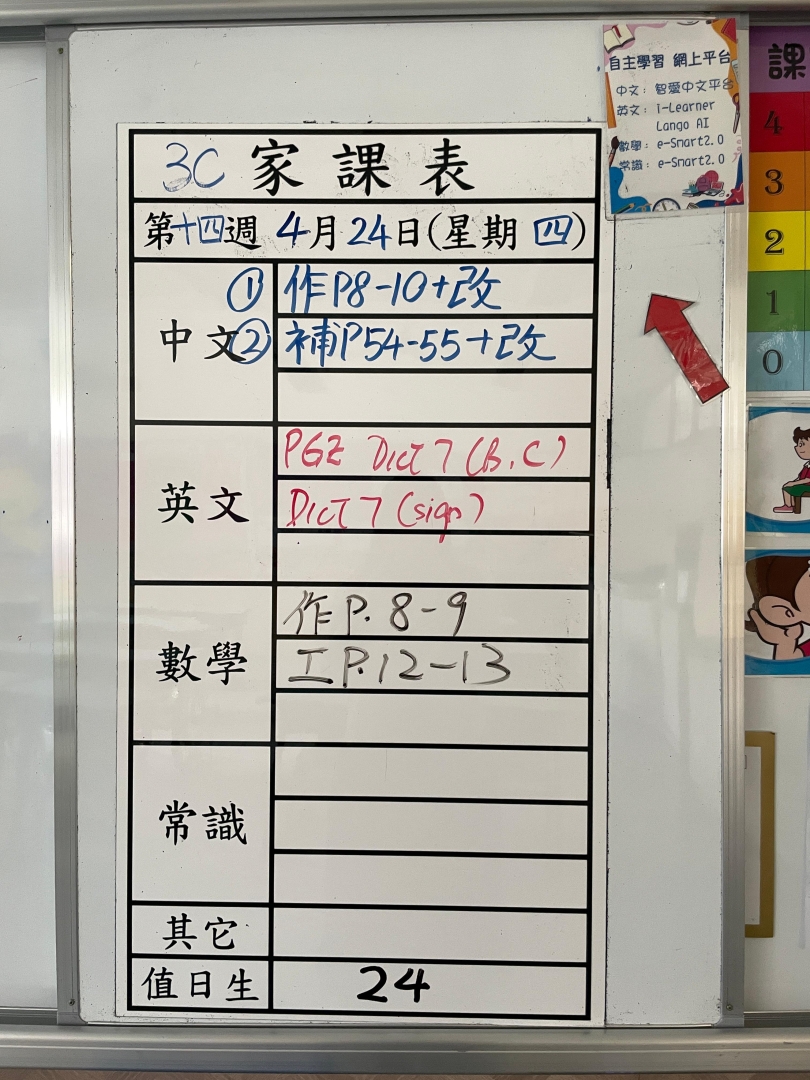 3C 家課表
第十四週 4月24日(星期四)
中文
① 作P8-10+改
② 補P54-55+改
英文
PGE Dict 7 (B,C)
Dict 7 (sign)
數學
作P.8-9
工P.12-13
常識
其它
值日生 24
自主學習 網上平台
中文: 智愛中文平台
英文: i-Learner
Lango AI
數學: e-Smart2.0
常識: e-Smart2.0
課
4
3
2
1
0